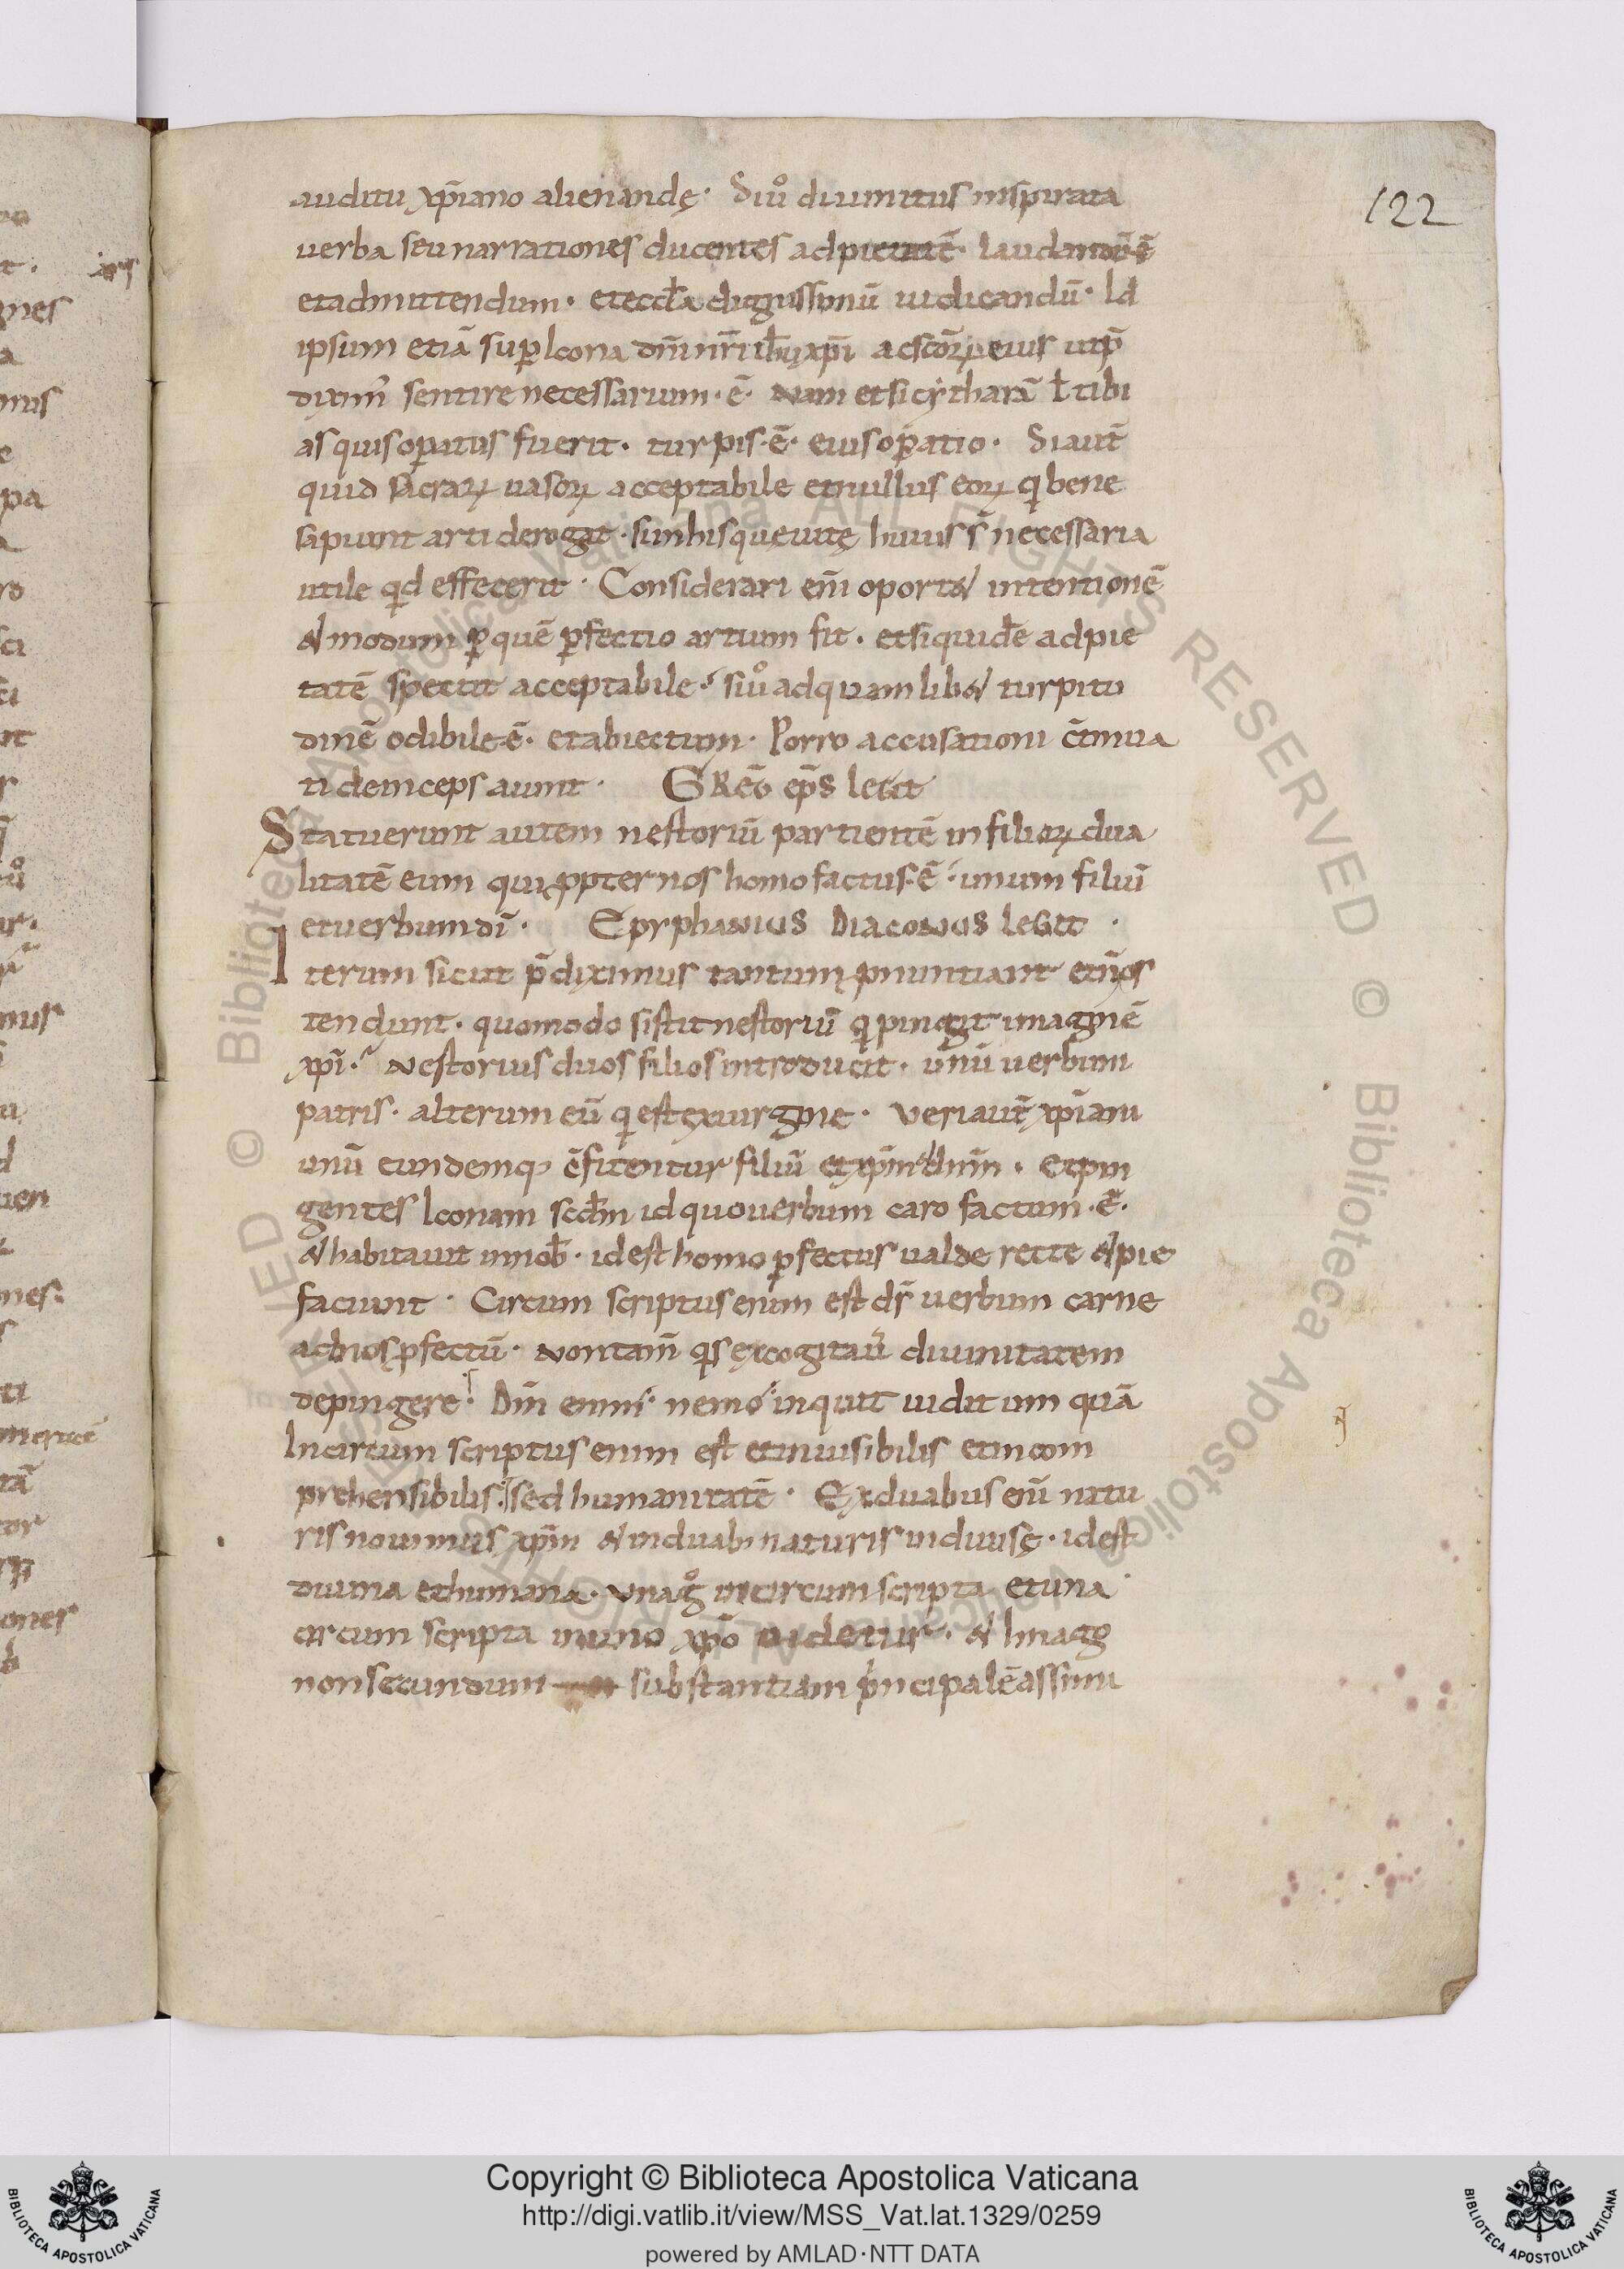 122
auditu xp̄iano alienandę· Siu° diuinitus inspirata
uerba seu narrationes ducentes ad pietatē· laudandū ē
et admittendum· et eccl̄a dignissimū iudicandū· Id
ipsum etiā sup Icona dn̄i nr̄i ih̄u xp̄i ac sc̄oꝝ eius ut p̄
diximꝰ sentire necessarium·ē· Nam et si cytharā ł tibi
as quis opatus fuerit· turpis·ē· eius opatio· Si aut̄
quid sacraꝝ uasoꝝ acceptabile et nullus eoꝝ qi bene
sapiunt arti derogat· sin his que uitę huius s̄ necessaria
utile qid effecerit· Considerari eni̅ oport& intentionē
& modum ꝑ quē ꝑfectio artium fit· et si quidē ad pie
tatē spectat acceptabile· siu° ad quam lib& turpitu
dinē odibile ē· et abiectum· Porro accusationi c̄tinua
ti deinceps aiunt· GREG ep̄s legit
Statuerunt autem nestoriū partientē in filioꝝ dua
litatē eum qui ꝓpter nos homo factus·ē· unum filiū
et uerbum dī· Epyphanius Diaconus legit·
Iterum sicut p̄diximus tantum ꝓnuntiant et n̄ os
tendunt· quomodo sistit nestoriū qi pingit imaginē
xp̄i· Nestorius duos filios introducit· unū uerbum
patris· alterum eū qi est ex uirgine· Veri aut̄ xp̄iani
unū eundemq; c̄fitentur filiū et xp̄m & dn̄m· et pin
gentes Iconam scdm̄ id quo uerbum caro factum·ē·
& habitauit in nob̄· id est homo ꝑfectus ualde recte & pie
faciunt· Circum scriptus enim est ds̄ uerbum carne
ad nos ꝓfectū· Non tam̄ qis excogitau̅ diuinitatem
depingere· Dm̄ enim· nemo inquit uidit um quā
Incircum scriptus enim est et inuisibilis et incom
prehensibilis· sed humanitatē· Ex duabus eni̅ natu
ris nouimus xp̄m & in duab; naturis indiuisę· id est
diuina et humana· Vna g° incircum scripta et una
circum scripta in uno xp̄o uidetur· & Imago
non secundum substantiam principalē assimi
Copyright © Biblioteca Apostolica Vaticana
http://digi.vatlib.it/view/MSS_Vat.lat.1329/0259
powered by AMLAD·NTT DATA
BIBLIOTECA APOSTOLICA VATICANA
BIBLIOTECA APOSTOLICA VATICANA